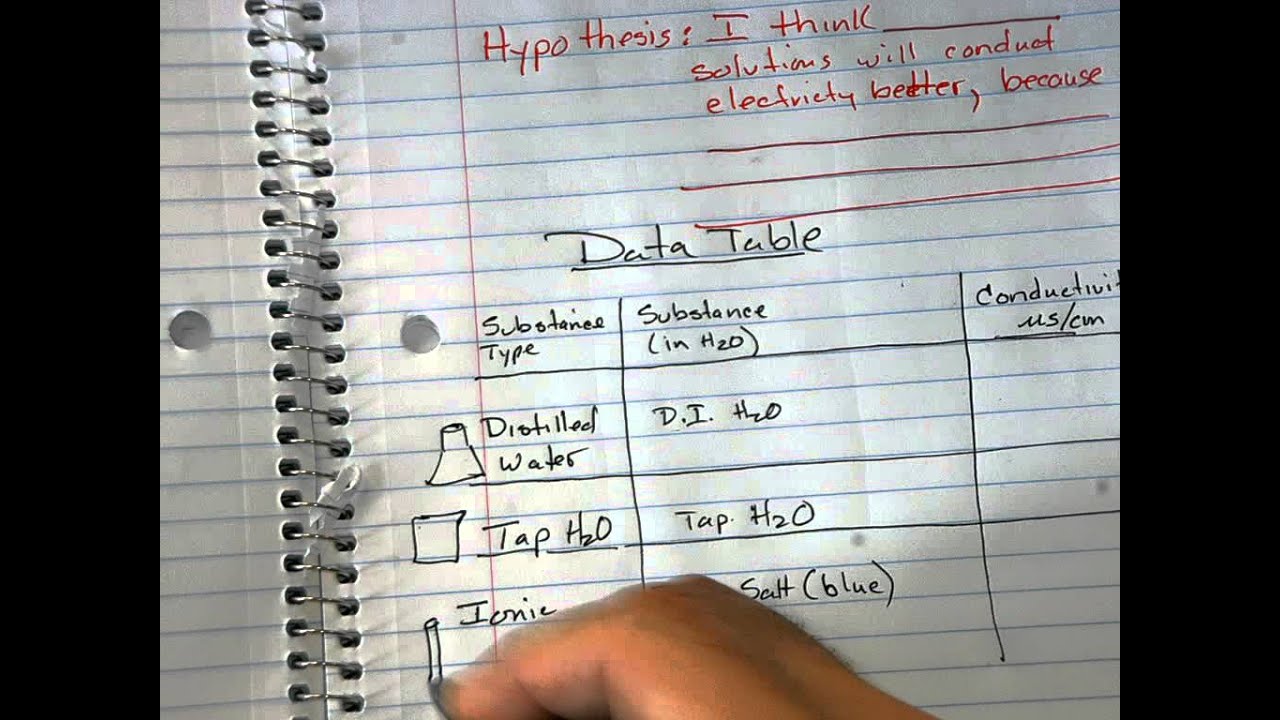 Hypothesis: I think
solutions will conduct
electricty better, because
Data Table
Substance
Type
Substance
(in H2O)
Conductivit
us/cm
Distilled
Water
D.I. H2O
Tap H2O
Tap. H2O
Ionic
Salt (blue)